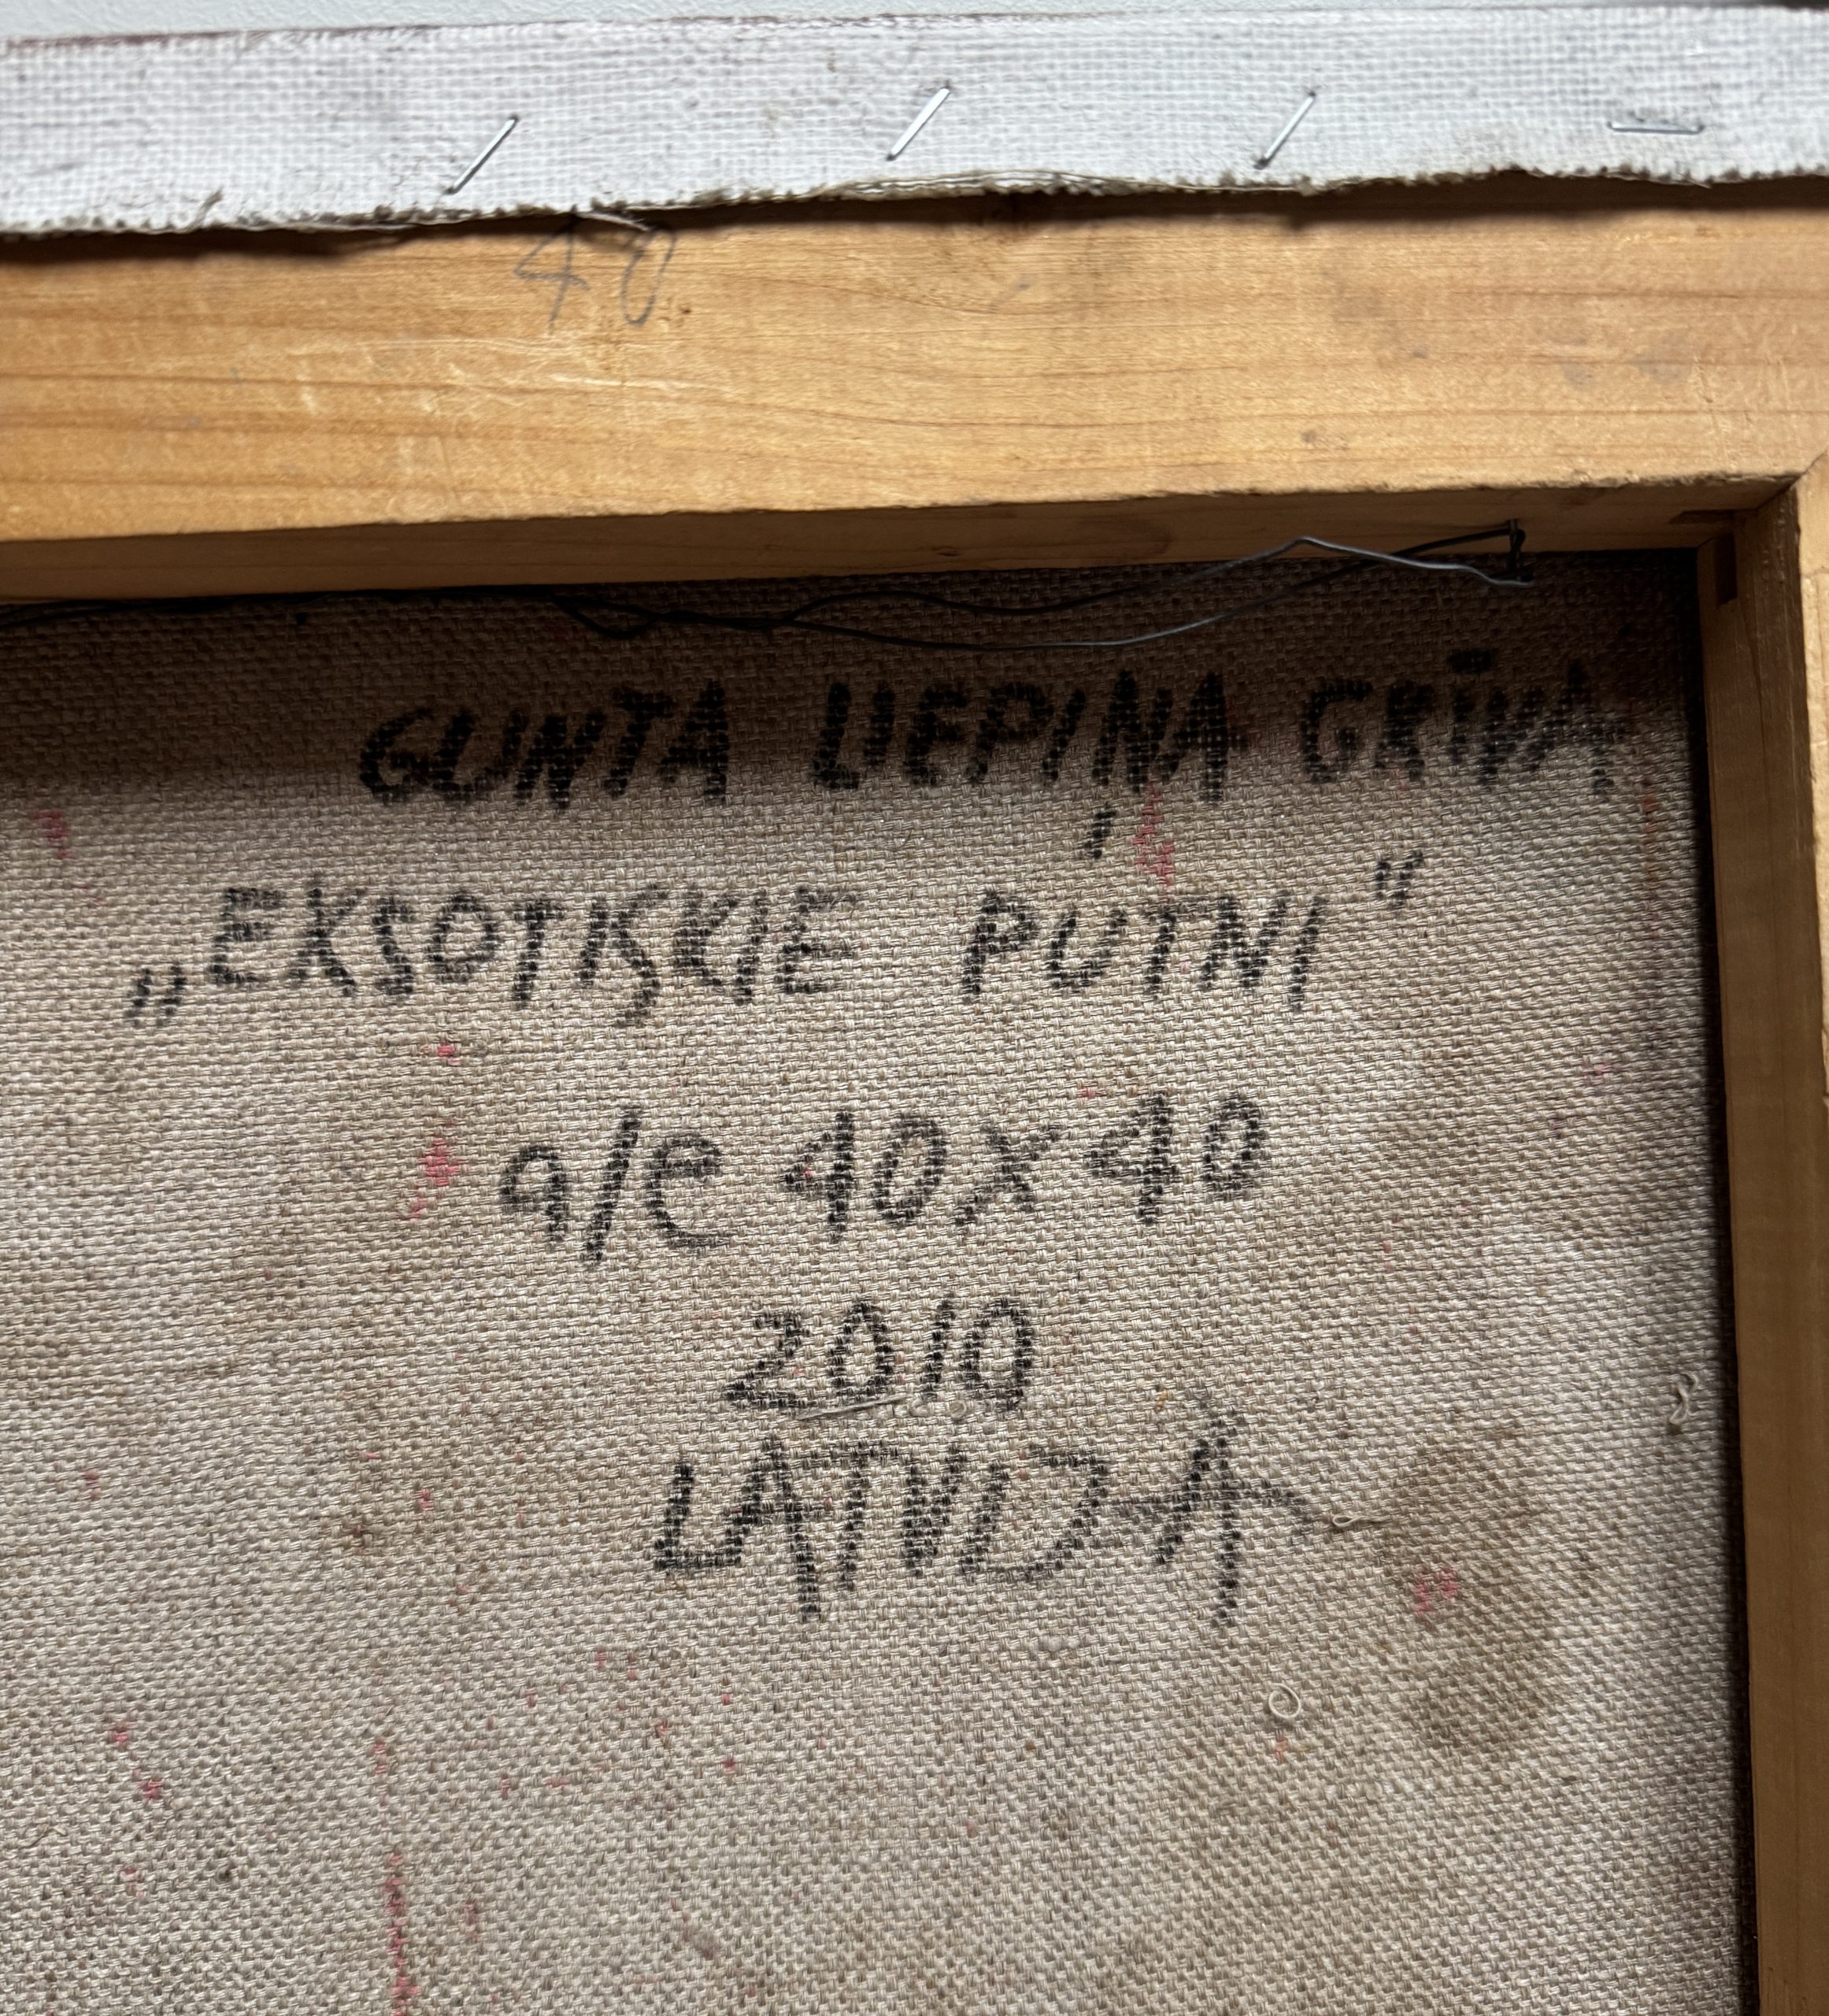 40
GUNTA LIEPIŅA GRĪVA
„EKSOTISKIE PUTNI"
a/e 40x40
2010
LATVIJA